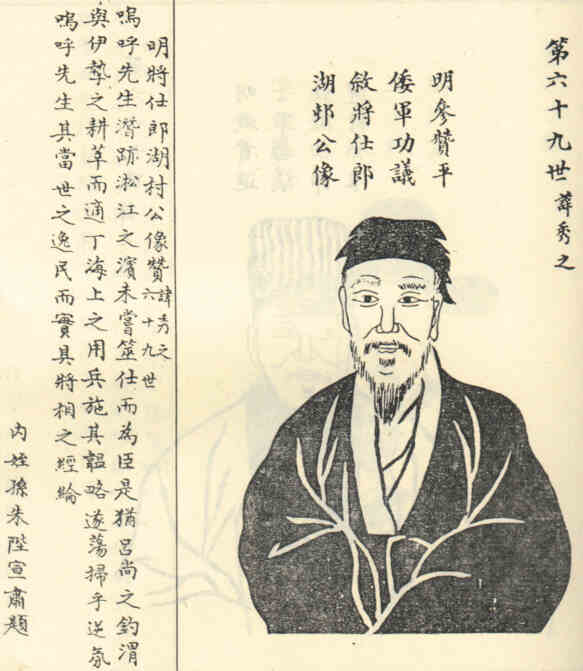 第六十九世諱秀之
明參贊平
倭軍功議
敘將仕郎
湖邨公像
明將仕郎湖村公像贊諱秀之六十九世
嗚呼先生潛跡淞江之濱未嘗筮仕而為臣是猶呂尚之釣渭
與伊摯之耕莘而適丁海上之用兵施其韜略遂蕩掃乎逆氛
嗚呼先生其當世之逸民而實具將相之經綸
內姪孫朱陛宣肅題